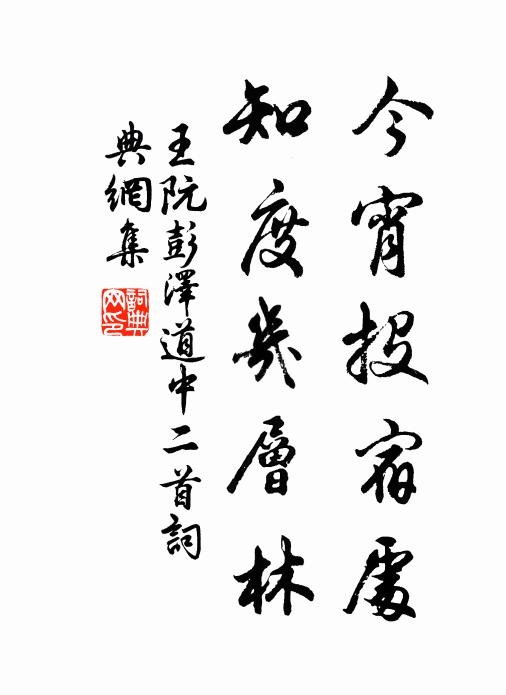 今宵投宿處
知度幾層林
王阮彭澤道中二首詞
典網集
詞典
网印